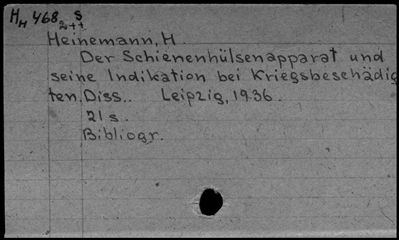 HH 468 S
2++
Heinemann, H
Der Schienenhülsenapparat und
seine Indikation bei Kriegsbeschädig
ten. Diss.. Leipzig, 1936.
21 s.
Bibliogr.